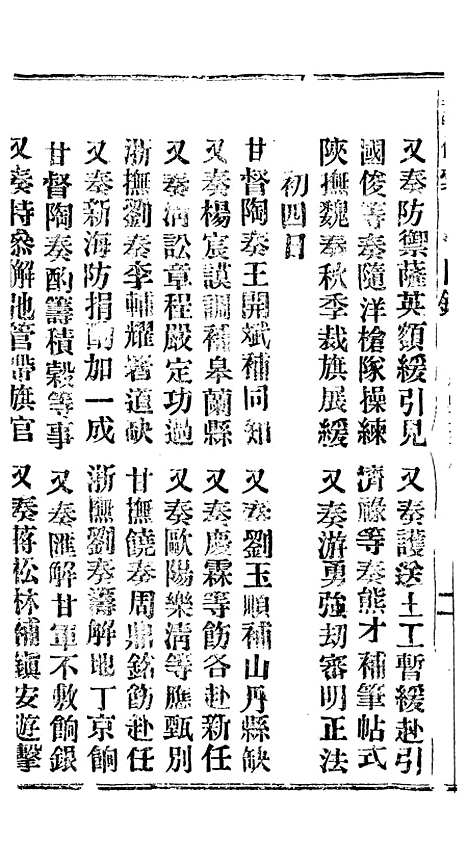 又奏防禦薩英額緩引見
又奏護送土工暫緩赴引
國俊等奏隨洋槍隊操練
濟祿等奏熊才補筆帖式
陝撫魏奏秋季裁旗展緩
又奏游勇強刧審明正法
初四日
甘督陶奏王開斌補同知
又奏劉玉順補山丹縣缺
又奏楊宸謨調補皋蘭縣
又奏慶霖等飭各赴新任
又奏清訟章程嚴定功過
又奏歐陽樂清等應甄別
浙撫劉奏李輔燿署道缺
甘撫饒奏周鼎銘飭赴任
又奏新海防捐酌加一成
浙撫劉奏籌解地丁京餉
甘督陶奏酌籌積穀等事
又奏匯解甘軍不敷餉銀
又奏特參解池管帶旗官
又奏蔣松林補鎮安遊擊